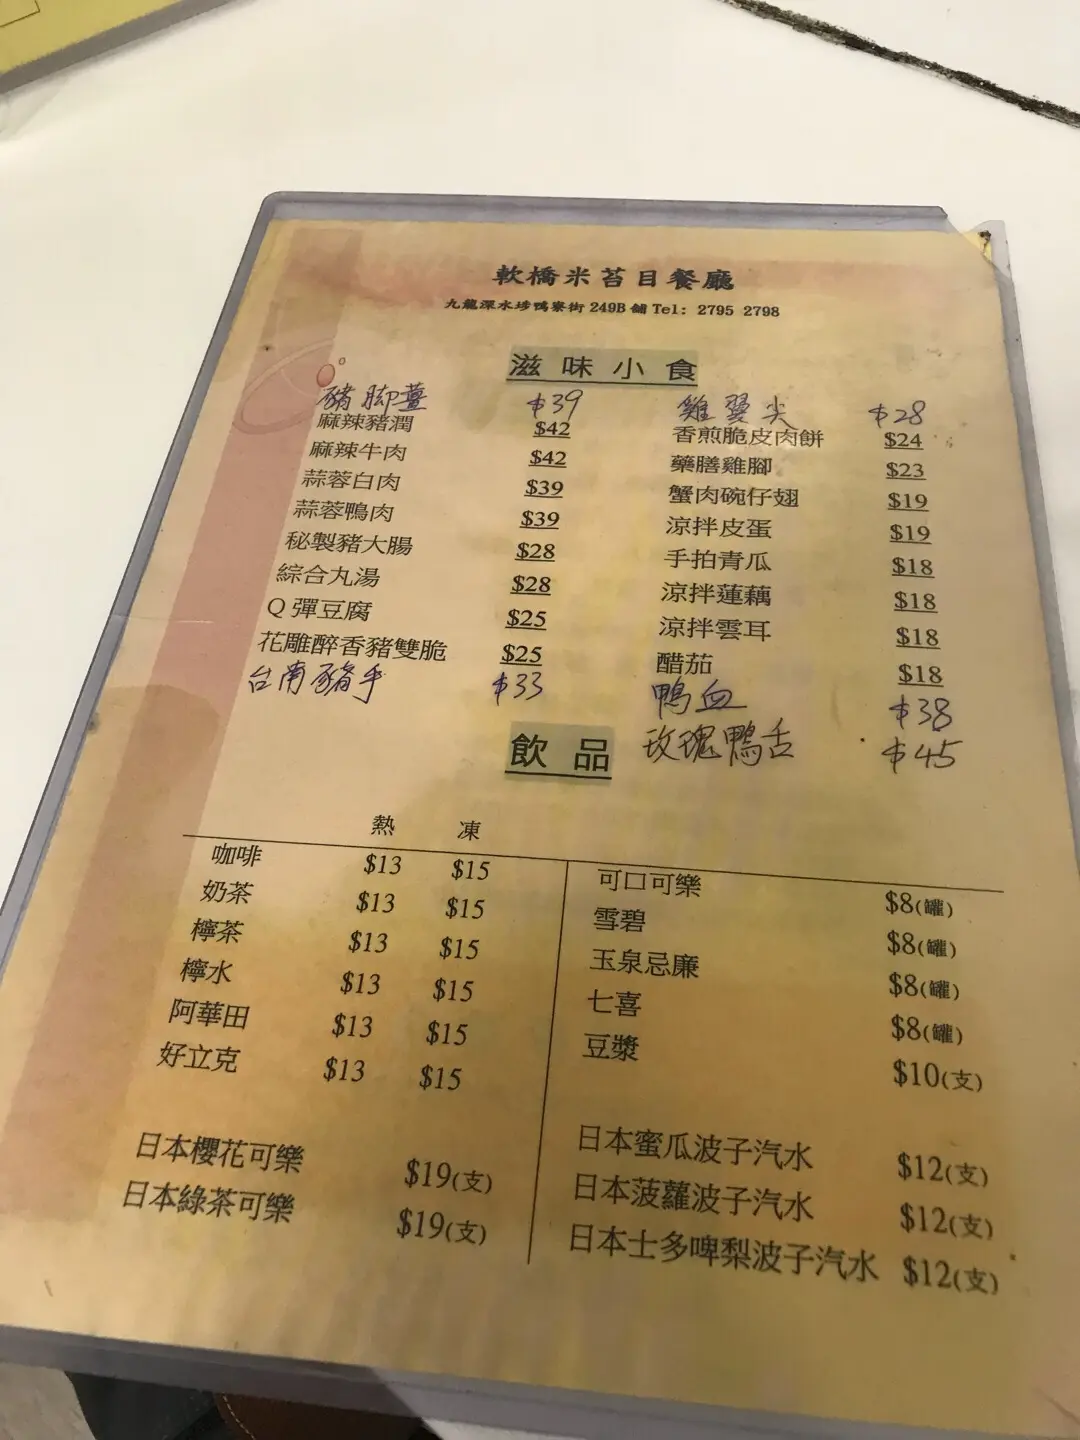 軟橋米苔目餐廳
九龍深水埗鴨寮街 249B 舖 Tel: 2795 2798
滋味小食
豬脚薑 $39
麻辣豬潤 $42
麻辣牛肉 $42
蒜蓉白肉 $39
蒜蓉鴨肉 $39
秘製豬大腸 $28
綜合丸湯 $28
Q 彈豆腐 $25
花雕醉香豬雙脆 $25
台南豬手 $33
雞翼尖 $28
香煎脆皮肉餅 $24
藥膳雞腳 $23
蟹肉碗仔翅 $19
涼拌皮蛋 $19
手拍青瓜 $18
涼拌蓮藕 $18
涼拌雲耳 $18
醋茄 $18
鴨血 $38
玫瑰鴨舌 $45
飲品
熱 凍
咖啡 $13 $15
奶茶 $13 $15
檸茶 $13 $15
檸水 $13 $15
阿華田 $13 $15
好立克 $13 $15
日本櫻花可樂 $19(支)
日本綠茶可樂 $19(支)
可口可樂 $8(罐)
雪碧 $8(罐)
玉泉忌廉 $8(罐)
七喜 $8(罐)
豆漿 $10(支)
日本蜜瓜波子汽水 $12(支)
日本菠蘿波子汽水 $12(支)
日本士多啤梨波子汽水 $12(支)